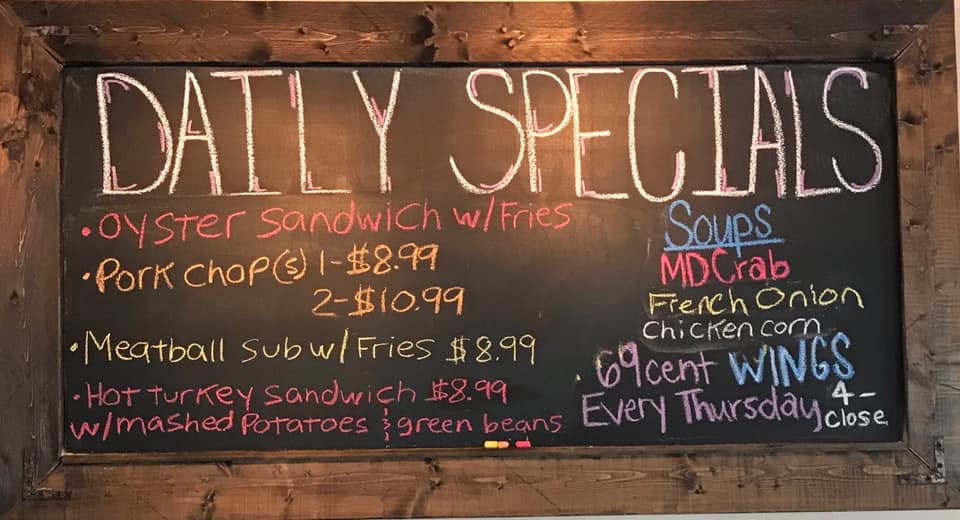 DAILY SPECIALS
• Oyster Sandwich w/Fries
• Pork Chop(s) 1-$8.99
2-$10.99
• Meatball Sub w/ Fries $8.99
• Hot turkey Sandwich $8.99
w/mashed Potatoes & green beans
Soups
MD Crab
French Onion
Chicken corn
69cent WINGS
Every Thursday 4-
Close